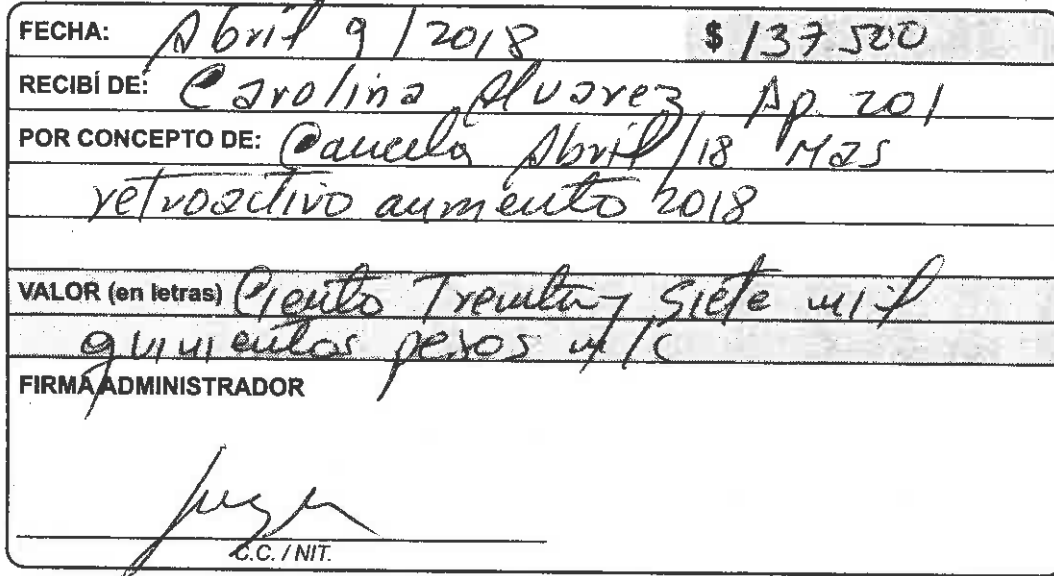 FECHA: Abril 9 / 2018 $ 137500
RECIBÍ DE: Carolina Alvarez Ap. 201
POR CONCEPTO DE: Cancela Abril/18 Mas
retroactivo aumento 2018
VALOR (en letras) Ciento Treinta y Siete mil
quinientos pesos m/c
FIRMA ADMINISTRADOR
C.C. / NIT.